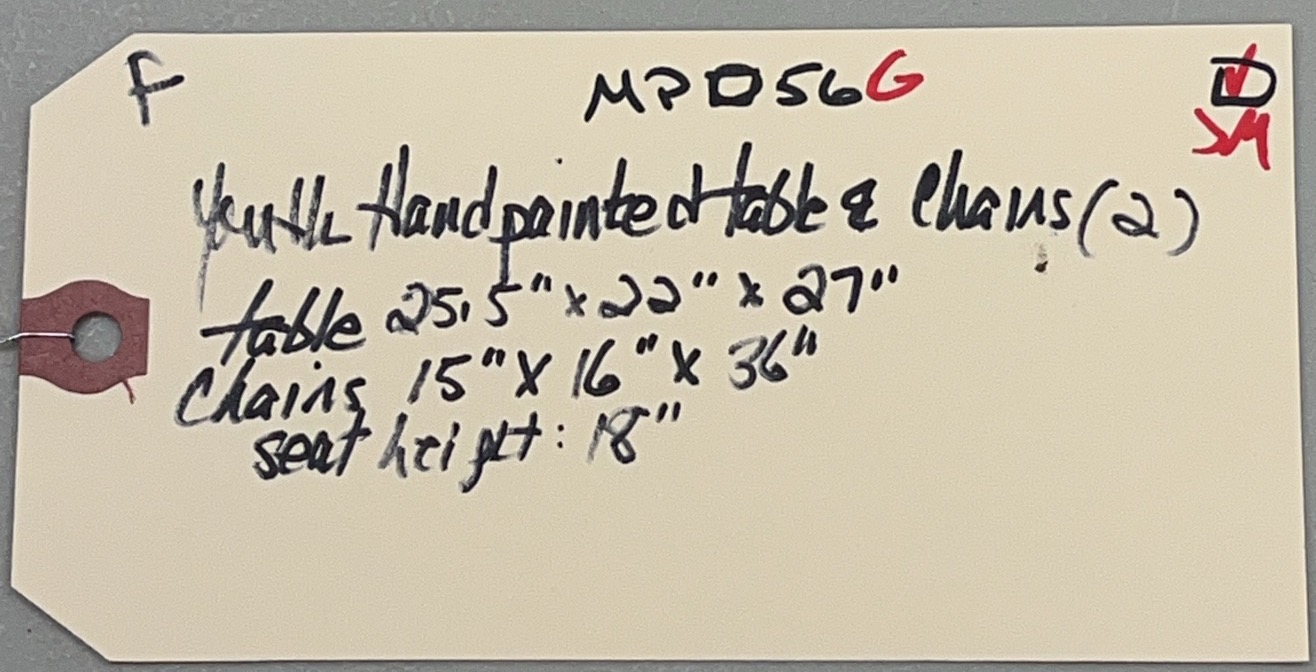 F MPD56G D
JM
Youth Handpainted table & Chairs (2)
table 25.5" x 22" x 27"
Chairs 15" x 16" x 36"
seat height: 18"